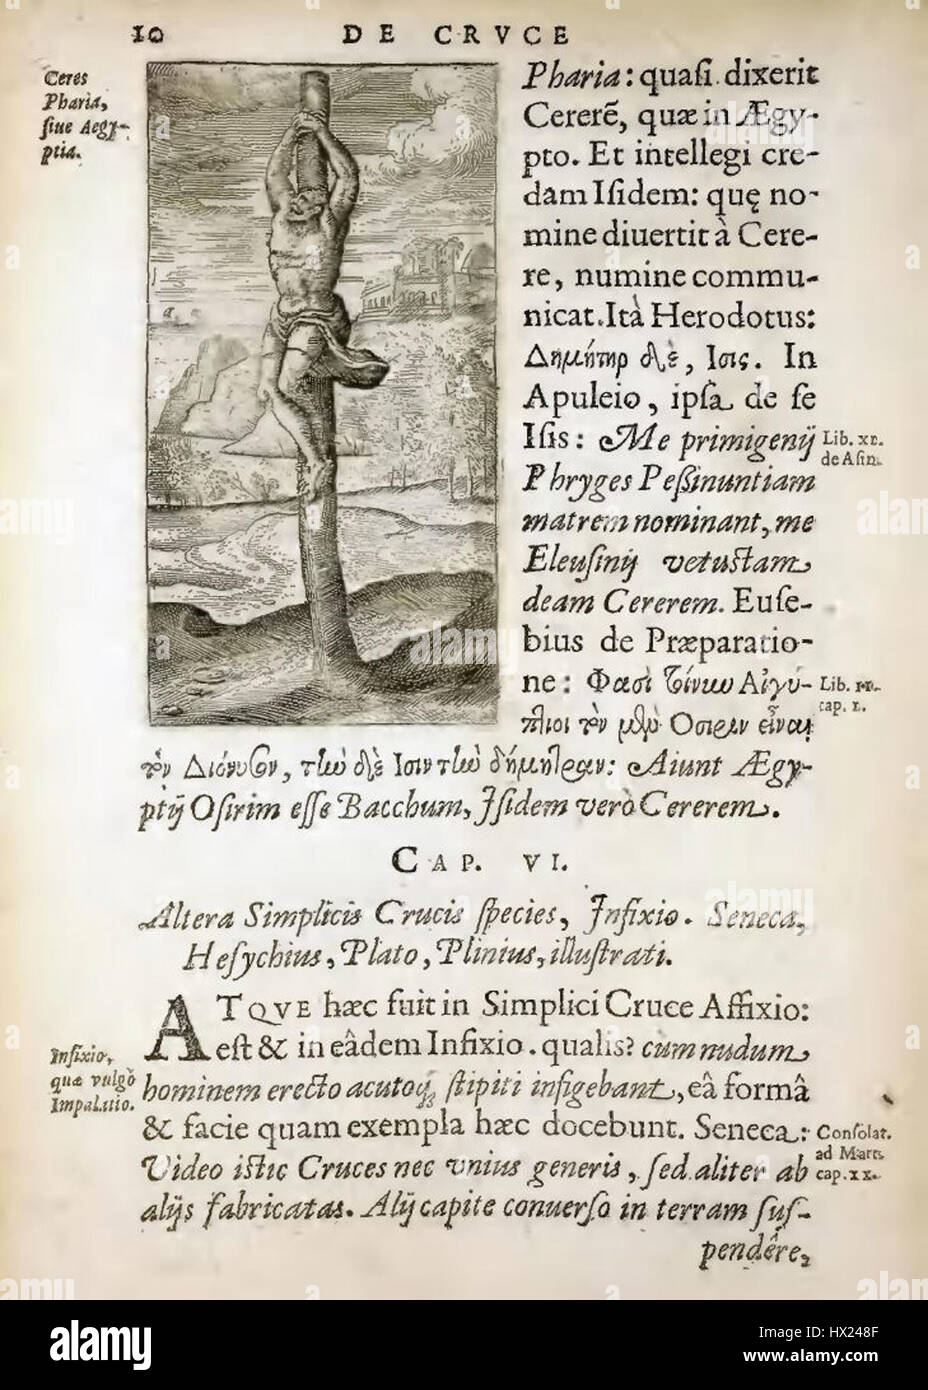 10 DE CRVCE
Ceres
Pharia,
ſiue Aegy-
ptia.
Pharia: quaſi dixerit
Cererẽ, quæ in Ægy-
pto. Et intellegi cre-
dam Iſidem: quę no-
mine diuertit à Cere-
re, numine commu-
nicat. Ità Herodotus:
Δημήτηρ δὲ, Ισις. In
Apuleio, ipſa de ſe
Iſis: Me primigenij
Lib. XI.
de Aſin.
Phryges Peßinuntiam
matrem nominant, me
Eleuſinij vetuſtam
deam Cererem. Euſe-
bius de Præparatio-
ne: Φασὶ τίνιω Αἰγύ-
Lib. II.
cap. I.
πτιοι τὸν μὲν Οσιριν εἶναι
τὸν Διόνυσον, τὴν δὲ Ισιν τὴν δήμητραν: Aiunt Ægy-
ptij Oſirim eſſe Bacchum, Iſidem verò Cererem.
CAP. VI.
Altera Simplicis Crucis ſpecies, Infixio. Seneca,
Heſychius, Plato, Plinius, illuſtrati.
ATQVE hæc fuit in Simplici Cruce Affixio:
eſt & in eâdem Infixio. qualis? cùm nudum
Infixio,
quæ vulgò
Impalatio.
hominem erecto acutoq; ſtipiti infigebant, eâ formâ
& facie quam exempla hæc docebunt. Seneca:
Conſolat.
ad Mart.
cap. XX.
Video iſtic Cruces nec vnius generis, ſed aliter ab
alijs fabricatas. Alij capite conuerſo in terram ſuſ-
pendêre,
alamy
Image ID: HX248F
www.alamy.com